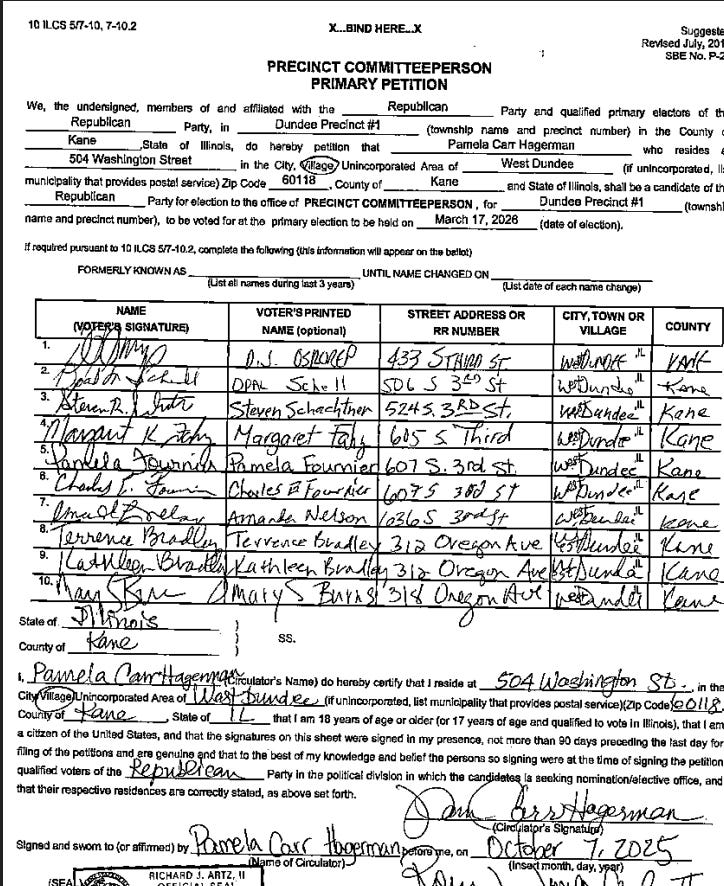 10 ILCS 5/7-10, 7-10.2
X...BIND HERE...X
Suggeste
Revised July, 201
SBE No. P-2
PRECINCT COMMITTEEPERSON
PRIMARY PETITION
We, the undersigned, members of and affiliated with the Republican Party and qualified primary electors of th
Republican Party, in Dundee Precinct #1 (township name and precinct number) in the County o
Kane ,State of Illinois, do hereby petition that Pamela Carr Hagerman who resides a
504 Washington Street in the City, Village, Unincorporated Area of West Dundee (if unincorporated, lis
municipality that provides postal service) Zip Code 60118 , County of Kane and State of Illinois, shall be a candidate of th
Republican Party for election to the office of PRECINCT COMMITTEEPERSON, for Dundee Precinct #1 (townshi
name and precinct number), to be voted for at the primary election to be held on March 17, 2026 (date of election).
If required pursuant to 10 ILCS 5/7-10.2, complete the following (this information will appear on the ballot)
FORMERLY KNOWN AS UNTIL NAME CHANGED ON
(List all names during last 3 years) (List date of each name change)
NAME (VOTER'S SIGNATURE) VOTER'S PRINTED NAME (optional) STREET ADDRESS OR RR NUMBER CITY, TOWN OR VILLAGE COUNTY
1. D.J. 433 S THIRD ST WEST DUNDEE IL KANE
2. Schell 506 S 3rd St West Dundee IL Kane
3. Steven R. Steven Schachtner 524 S. 3RD St. West Dundee IL Kane
4. Margaret K Fahy Margaret Fahy 605 S Third West Dundee IL Kane
5. Pamela Fournier Pamela Fournier 607 S. 3rd St. West Dundee IL Kane
6. Charles E. Fournier Charles E Fournier 607 S 3rd ST West Dundee IL Kane
7. Amanda Nelson 1036 S 3rd St West Dundee IL Kane
8. Terrence Bradley Terrence Bradley 312 Oregon Ave West Dundee IL Kane
9. Kathleen Bradley Kathleen Bradley 312 Oregon Ave West Dundee IL Kane
10. Mary S Burns 318 Oregon Ave West Dundee IL Kane
State of Illinois )
County of Kane ) SS.
I, Pamela Carr Hagerman (Circulator's Name) do hereby certify that I reside at 504 Washington St. , in the
City/Village/Unincorporated Area of West Dundee (if unincorporated, list municipality that provides postal service)(Zip Code) 60118
County of Kane , State of IL that I am 18 years of age or older (or 17 years of age and qualified to vote in Illinois), that I am
a citizen of the United States, and that the signatures on this sheet were signed in my presence, not more than 90 days preceding the last day for
filing of the petitions and are genuine and that to the best of my knowledge and belief the persons so signing were at the time of signing the petition
qualified voters of the Republican Party in the political division in which the candidates is seeking nomination/elective office, and
that their respective residences are correctly stated, as above set forth.
Pam Carr Hagerman
(Circulator's Signature)
Signed and sworn to (or affirmed) by Pamela Carr Hagerman before me, on October 7, 2025
(Name of Circulator) (insert month, day, year)
(SEAL
RICHARD J. ARTZ, II
OFFICIAL SEAL